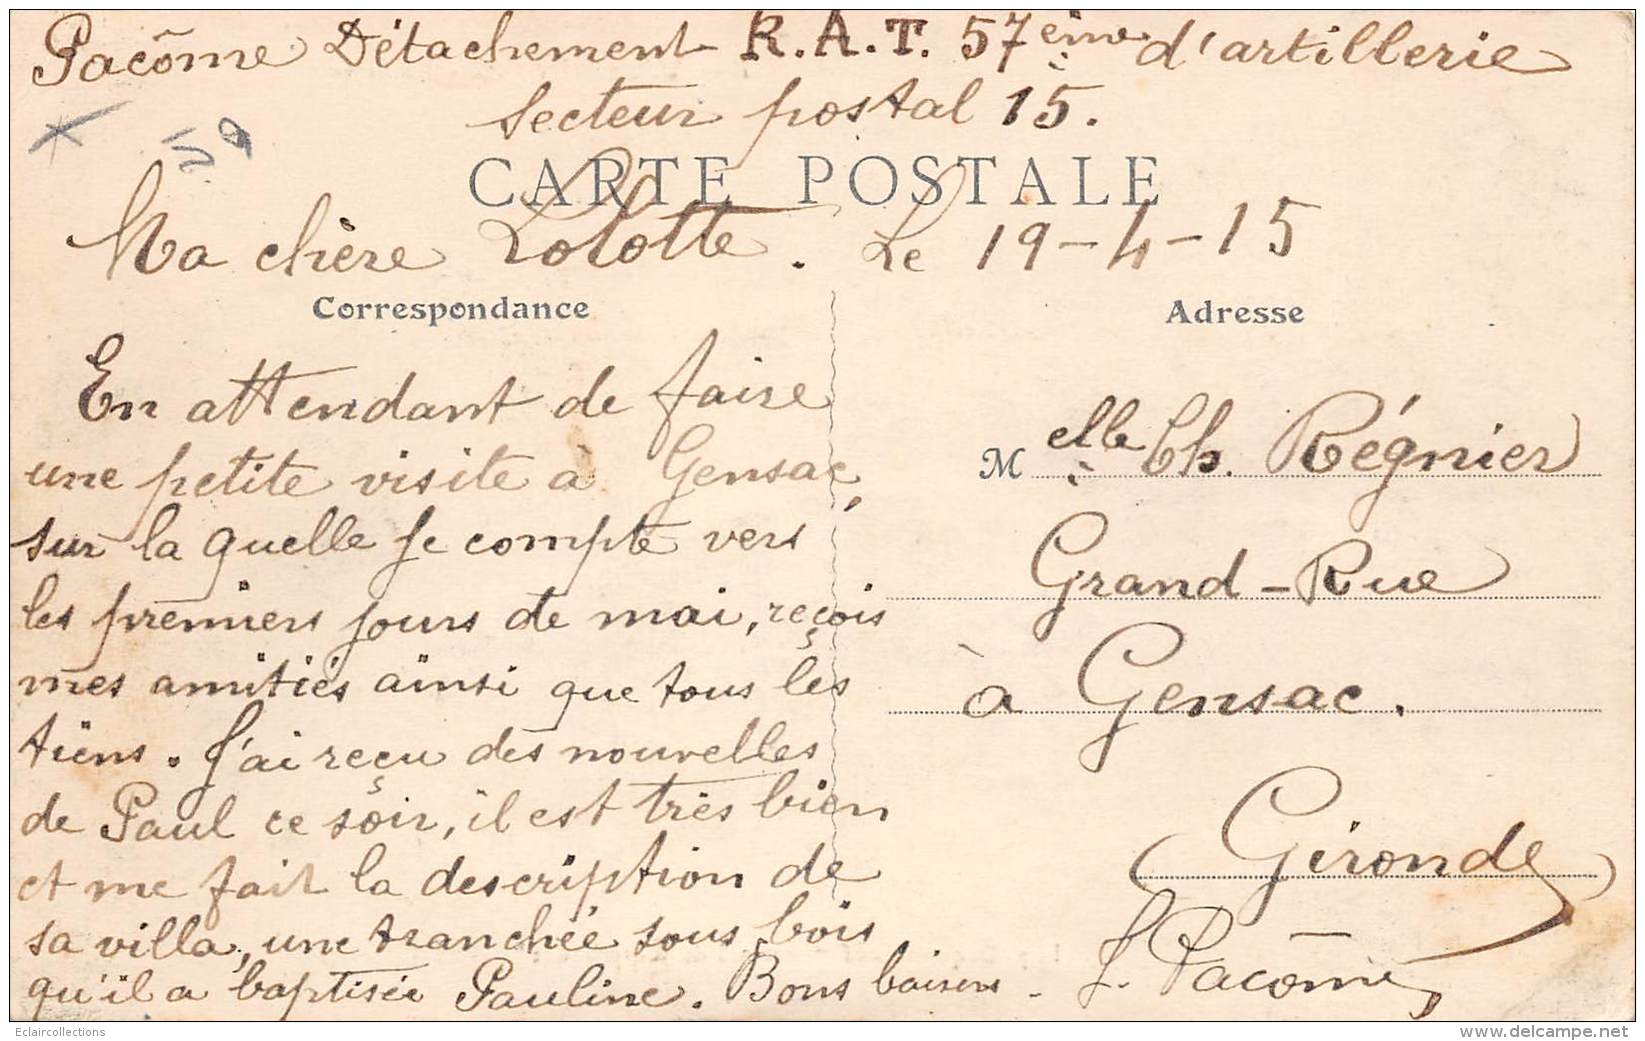 Pacôme Détachement R.A.T. 57ème d'artillerie
secteur postal 15.
CARTE POSTALE
Ma chère Lolotte. Le 19-4-15
Correspondance
Adresse
En attendant de faire
une petite visite à Gensac,
sur la quelle je compte vers
les premiers jours de mai, reçois
mes amitiés ainsi que tous les
tiens. J'ai reçu des nouvelles
de Paul ce soir, il est très bien
et me fait la description de
sa villa, une tranchée sous bois
qu'il a baptisée Pauline. Bons baisers.
Melle Ch. Régnier
Grand-Rue
à Gensac.
(Gironde)
J. Pacôme
Eclaircollections
www.delcampe.net